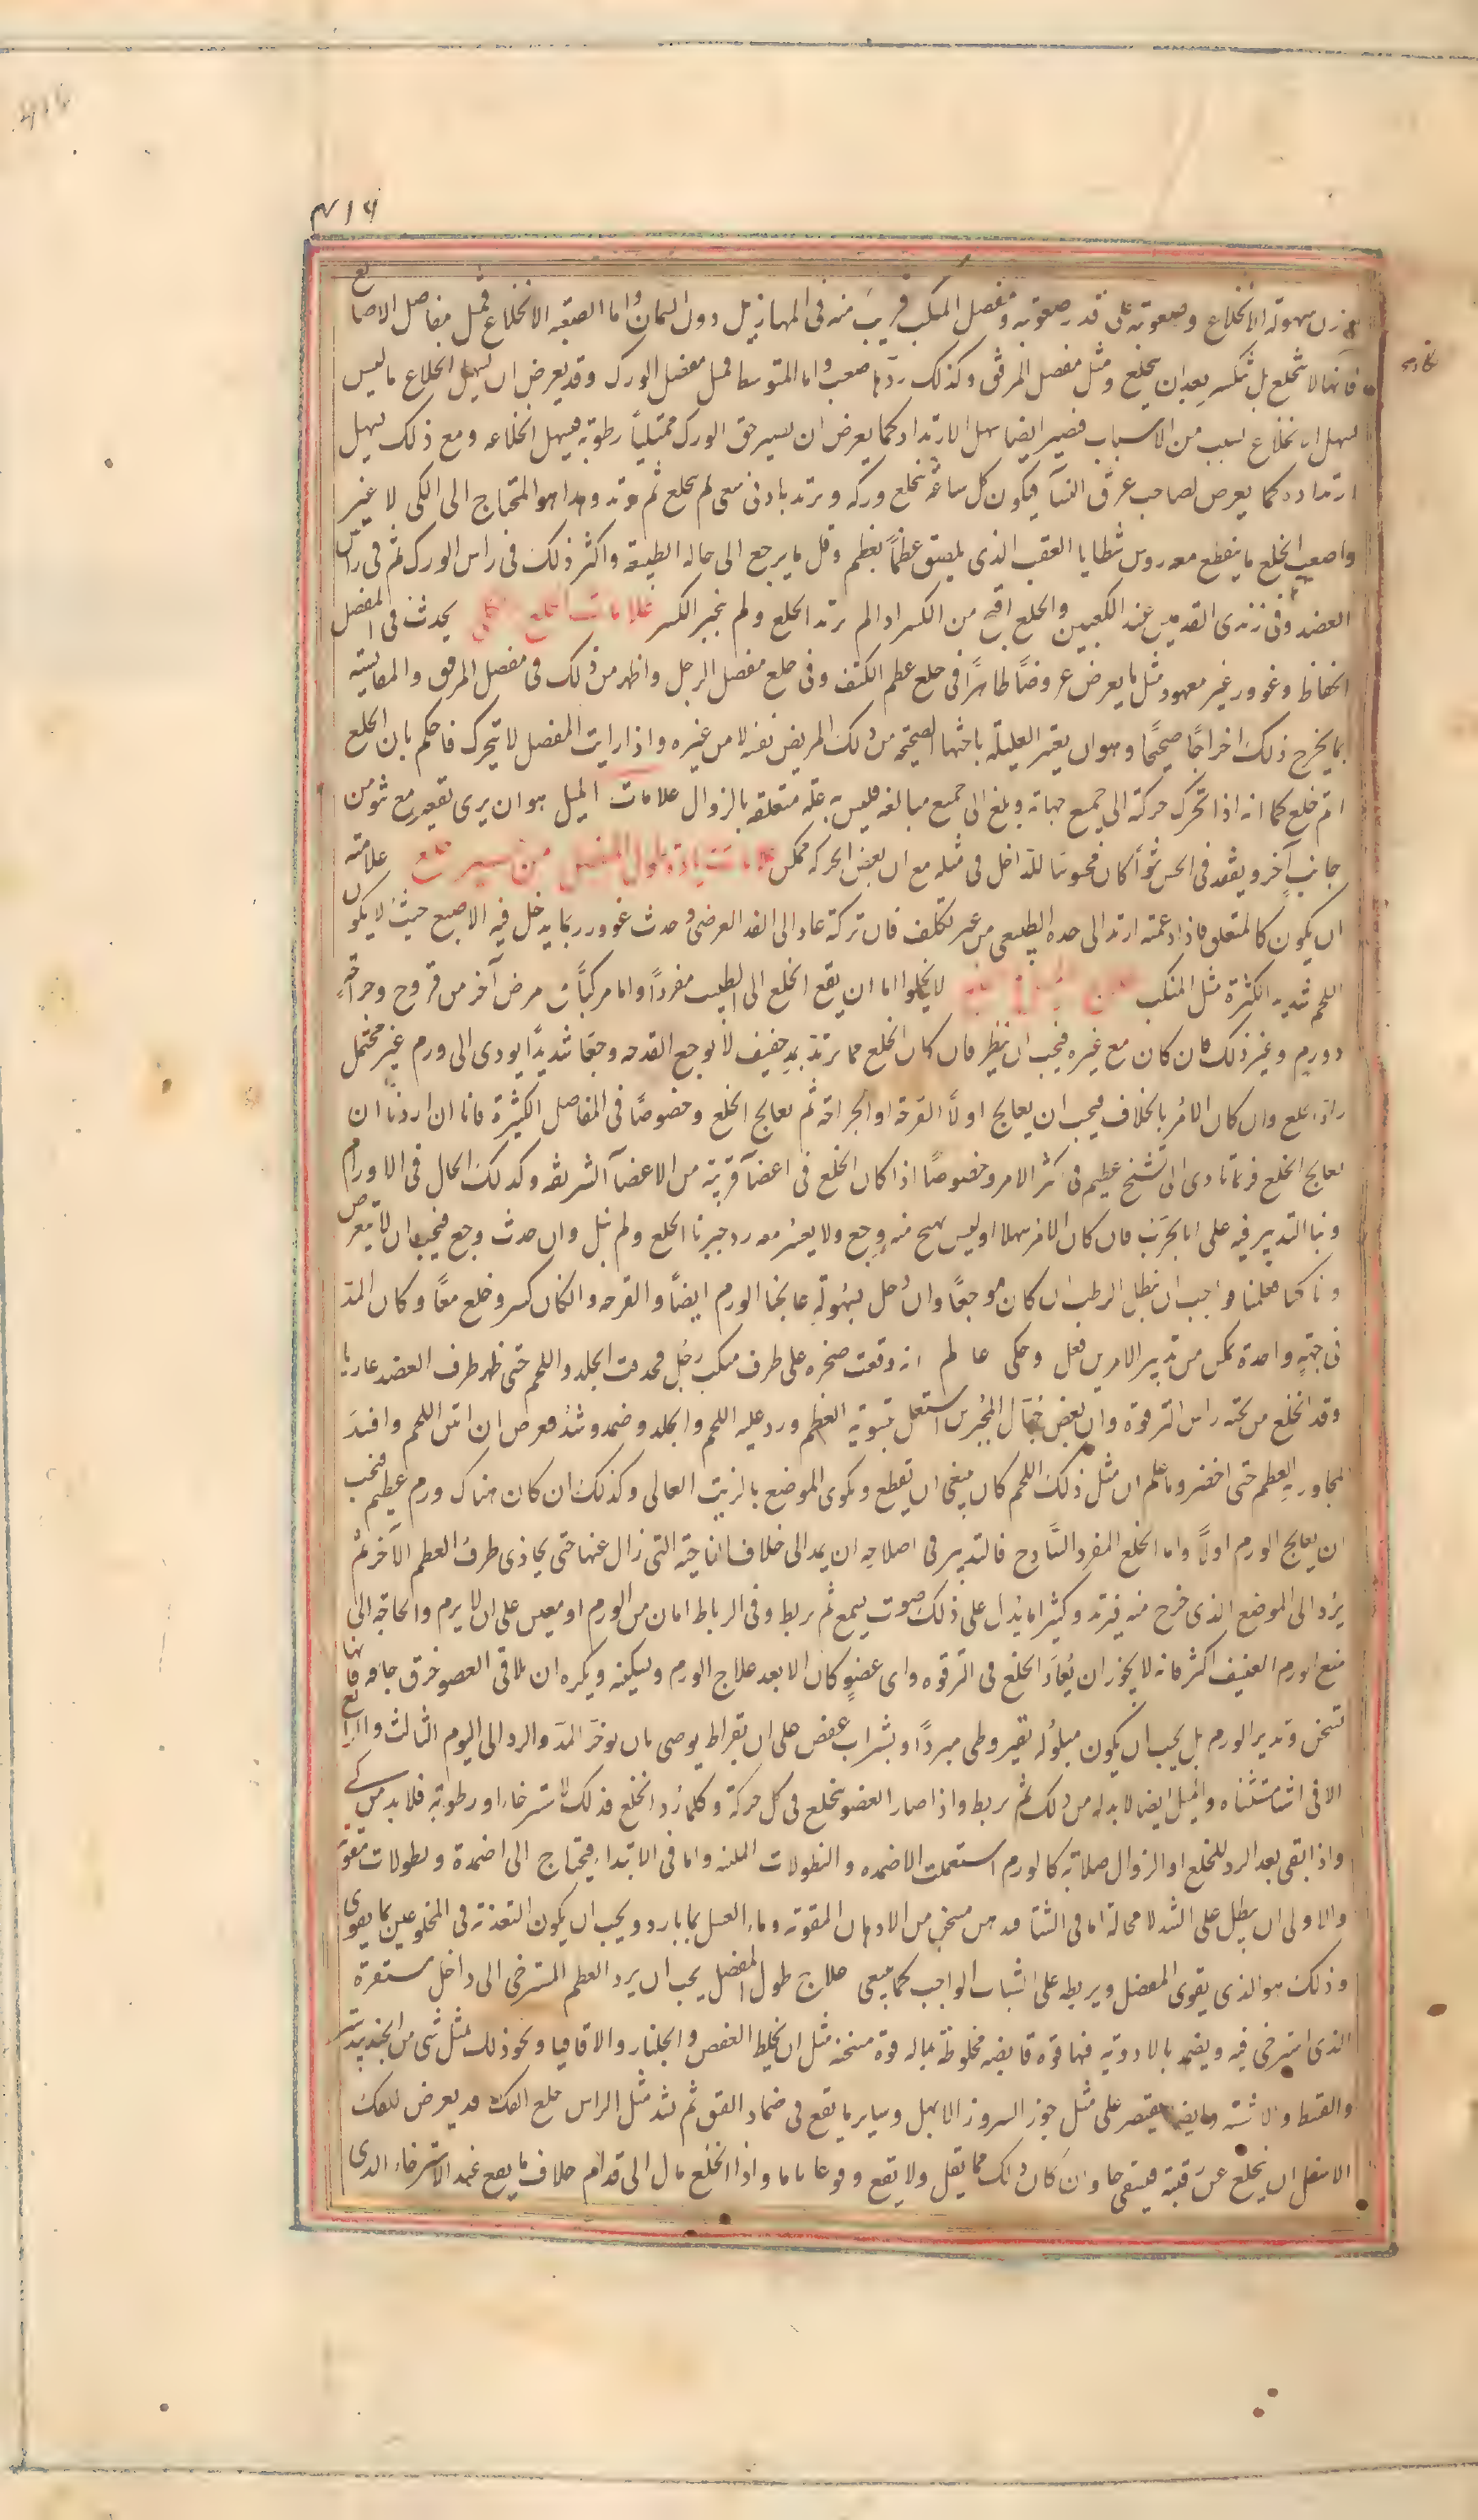 ٤١٦
سهولة الانخلاع وصعوبته على قدر صعوبته ومفصل المنكب قريب منه فى المهازيل دون السمان واما الصعبة الانخلاع فمثل مفاصل الاصابع
فانها لا تنخلع بل تنكسر بعد ان ينخلع ومثل مفصل المرفق وكذلك ردّها صعب واما المتوسط فمثل مفصل الورك وقد يعرض ان يسهل انخلاع ما ليس
يسهل انخلاع لسبب من الاسباب فيصير ايضا سهل الارتداد كما يعرض ان يسير حق الورك ممتلياً رطوبة فيسهل انخلاعه ومع ذلك يسهل
ارتداده كما يعرض لصاحب عرق النسآ فيكون كل ساعة ينخلع وركه ويرتد بادنى سعى ثم ينخلع ثم يرتد وهذا هو المحتاج الى الكى لا غير
واصعب الخلع ما ينقطع معه روس شظايا العقب الذى يلصق عظماً بعظم وقل ما يرجع الى حاله الطبيعة واكثر ذلك فى راس الورك ثم فى راس
العضد وفى زندى القدمين عند الكعبين والخلع اقبح من الكسر اذا لم يرتد الخلع ولم ينجبر الكسر علامات الخلع يحدث فى المفصل
انخفاظ وغوور غير معهود مثل ما يعرض عروضاً ظاهراً فى خلع عظم الكتف وفى خلع مفصل الرجل واظهر من ذلك فى مفصل المرفق والمقايسة
بما يخرج ذلك اخراجاً صحيحاً وهو ان يعتبر العليلة باختها الصحيحة من ذلك المريض نفسه لا من غيره واذا رايت المفصل لا يتحرك فاحكم بان الخلع
اتم خلع كما انه اذا تحرك حركة الى جميع جهاته وبلغ الى جميع مبالغه فليس به علة متعلقه بالزوال علامات الميل هو ان يرى تقعير مع نتو من
جانب آخر ويفقد فى الحس نتواً كان محوسا للداخل فى مثله مع ان بعض الحركة ممكن علامات زيادة طول المفصل من غير خلع علامته
ان يكون كالمتعلق فاذا دعمته ارتد الى حده الطبيعى من غير تكلف فان تركته عاد الى القد العرضى وحدث غوور ربما يدخل فيه الاصبع حيث لا يكون
اللحم شديد الكثرة مثل المنكب لا يخلوا اما ان يقع الخلع الى الطبيب مفرداً واما مركباً مع مرض آخر من قروح وجراحة
وورم وغير ذلك فان كان مع غيره فيجب ان ينظر فان كان الخلع مما يرتد بمد خفيف لا يوجع القدحه وجعا شديداً يودى الى ورم غير محتمل
رد الخلع وان كان الامر بالخلاف فيجب ان يعالج اولاً القرحة او الجراحة ثم يعالج الخلع وخصوصاً فى المفاصل الكثيرة فانا ان اردنا ان
نعالج الخلع فربما تادى الى تشنج عظيم فى اكثر الامر وخصوصاً اذا كان الخلع فى اعضآ قريبة من الاعضآ الشريفه وكذلك الحال فى الاورام
وبنا التدبير فيه على انا نجرب فان كان الامر سهلا اوليس يهيج منه وجع ولا يعسر معه رد جبرنا الخلع ولم نبل وان حدث وجع فيجب ان لا نتعرض
واجب ان يبطل الرطب ان كان موجعاً وان حل بسهولة عالجنا الورم ايضاً والقرحه وان كان كسر وخلع معاً وكان المد
فى جهة واحدة تمكن من تدبير الامرين فعل وحكى عالم انه وقعت صخره على طرف منكب رجل فخدعت الجلد واللحم حتى ظهر طرف العضد عاريا
وقد انخلع من تحته راس الترقوة وان بعض جهال المجبرين استعمل تسوية العظم ورد عليه اللحم والجلد وضمد وشد فعرض ان انتن اللحم وافسد
المجاور العظم حتى اخضر وما علم ان مثل ذلك اللحم كان ينبغى ان يقطع ويكوى الموضع بالزيت العالى وكذلك ان كان هناك ورم عظيم فيجب
ان يعالج الورم اولاً واما الخلع المفرد السَّاذج فالتدبير فى اصلاحه ان يمد الى خلاف الناحية التى زال عنها حتى يحاذى طرف العظم الآخر ثم
يرد الى الموضع الذى خرج منه فيرتد وكثيرا ما يدل على ذلك صوت يسمع ثم ربط وفى الرباط امان من الورم او معين على ان لا يرم والحاجة الى
منع الورم العفيف اكثر فانه لا يجوز ان يُعادَ الخلع فى الترقوه واى عضوٍ كان الا بعد علاج الورم وتسكينه ويكره ان يلاقى العضو خرق جافه فانها
تسخن وتدير الورم بل يجب ان يكون مبلوله بقيروطى مبرداً وبشراب عفص على ان بقراط يوصى بان يوخر المد والرد الى اليوم الثالث والرابع
الا فى اشيا مستثناه والميل ايضا لا بد له من ذلك ثم يربط واذا صار العضو ينخلع فى كل حركة وكلما رُد انخلع فذلك لاسترخاء او رطوبة فلا بد من كى
واذا بقى بعد الرد للخلع او الزوال صلابة كالورم استعملت الاضمده والنطولات الملينه واما فى الابتداء فيحتاج الى اضمدة ونطولات مقوية
والاولى ان يبطل على الشد لا محالة اما فى الشتا فدهن مسخن من الادهان المقوية وماء العسل بما بارد ويجب ان يكون التغذية فى المخلوعين بما يقوى
وذلك هو الذى يقوى المفصل ويربطه على الثبات الواجب كما ينبغى علاج طول المفصل يجب ان يرد العظم المسترخى الى داخل مستقره
الذى استرخى فيه ويضمد بالادوية فيها قوه قابضه مخلوطة بماله قوة مسخنة مثل ان يخلط العفص والجلنار والاقاقيا ونحو ذلك بمثل شى من الجندبيدستر
والقسط والاشنة وما يقتصر على مثل جوز السرو والابهل وساير ما يقع فى ضماد الفتق ثم يشد مثل الراس خلع الفك قد يعرض للفك
الاسفل ان ينخلع عن رقبته فيبقى حا وان كان ذلك مما يقل ولا يقع وقوعا تاما واذا انخلع مال الى قدام خلاف ما يقع عند الاسترخاء الذى